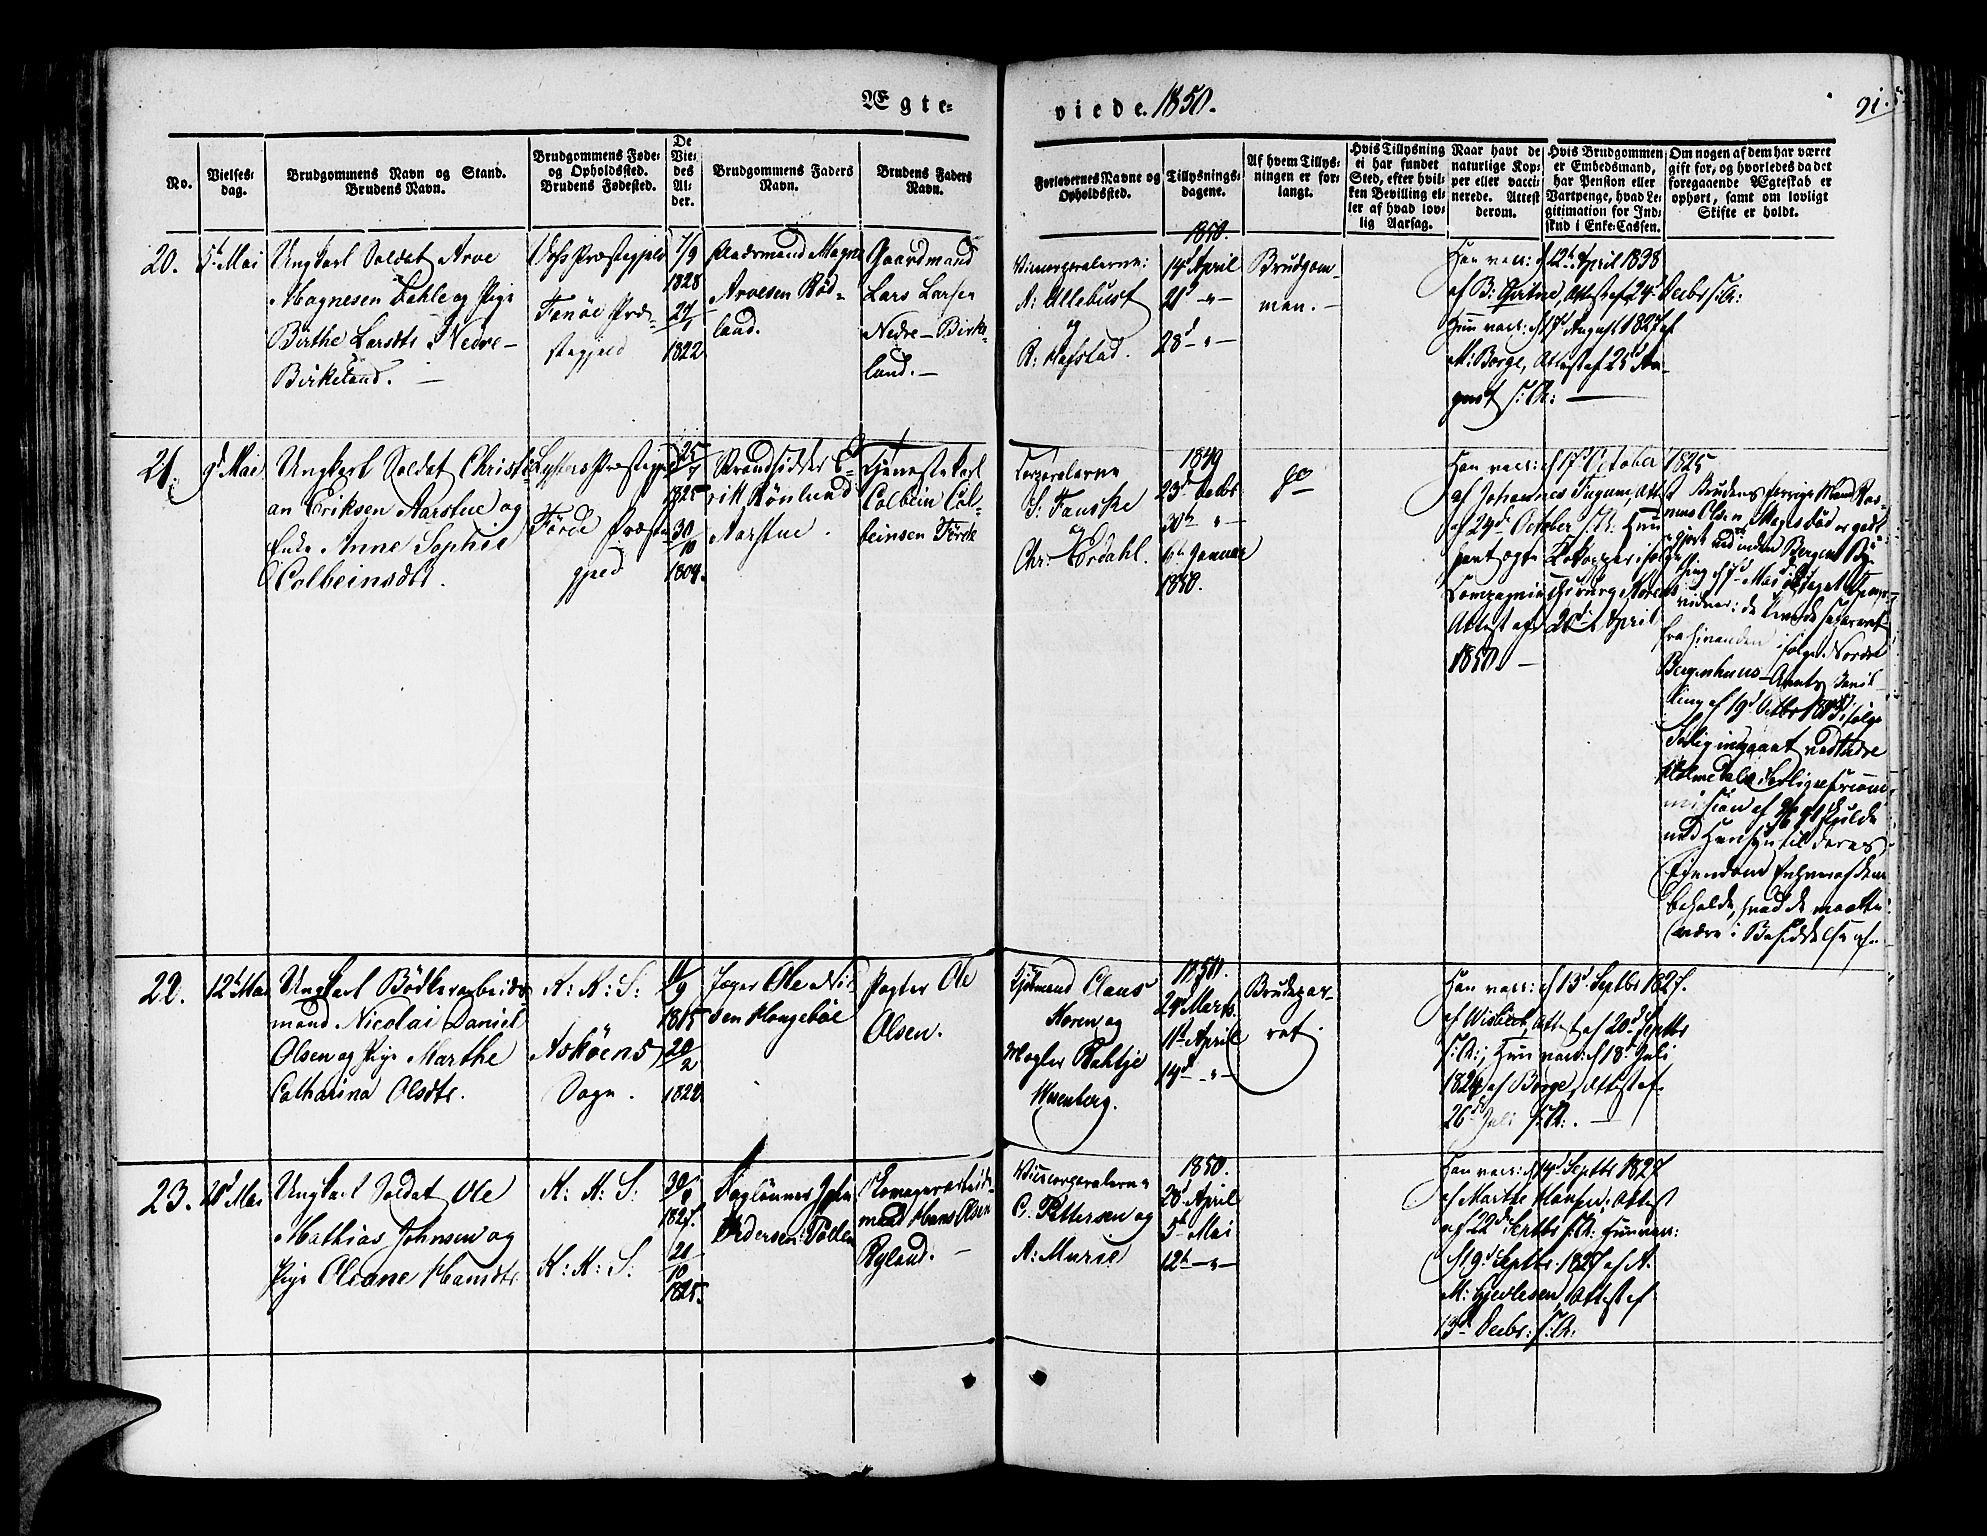 Ægte-
viede. 1850.
91.
No.
Vielses-
dag.
Brudgommens Navn og Stand.
Brudens Navn.
Brudgommens Føde-
og Opholdssted.
Brudens Fødested.
De
Vie-
des
Al-
der.
Brudgommens Faders
Navn.
Brudens Faders
Navn.
Forlovernes Navne og
Opholdssted.
Tillysnings-
dagene.
Af hvem Tillys-
ningen er for-
langt.
Hvis Tillysning
ei har fundet
Sted, efter hvil-
ken Bevilling el-
ler af hvad lov-
lig Aarsag.
Naar havt de
naturlige Kop-
per eller vacci-
nerede. Attest
derom.
Hvis Brudgommen
er Embedsmand,
har Pension eller
Vartpenge, hvad Le-
gitimation for Ind-
skud i Enke-Cassen.
Om nogen af dem har været
gift før, og hvorledes da det
foregaaende Ægteskab er
ophørt, samt om lovligt
Skifte er holdt.
20.
5t Mai
Ungkarl Soldat Arve
Magnesen Dahle og Pige
Birthe Larsdtr Nedre-
Birkeland.
Vos Præstegjeld
Fanøe Præ-
stegjeld
7/9
1828
27/1
1822
Gaardmand Magne
Arvesen Röd-
land.
Gaardmand
Lars Larsen
Nedre-Birke-
land.
Vicecorporalerne:
A: Ullebust
og
R: Hafstad.
1850.
14d April
21d - " -
28 - " -
Brudgom-
men.
Han vacc: d 12te April 1838
af B: Gjitne, Attest af 24d Decbr s: A:
Hun vacc: d 17d August 1827 af
M: Borge, Attest af 25d Au-
gust s: A:
21.
9d Mai
Ungkarl Soldat Christi-
an Eriksen Aarstue og
Enke Anne Sophie
Colbeinsdtr.
Lysters Præstegjeld
Förde Præste-
gjeld
25/7
1825
30/10
1804.
Strandsidder E-
rik Rönlund
Aarstue.
Tjenestekarl
Colbein Col-
beinsen Förde
Corporalerne
S: Fauske
og
Chr: Ordahl.
1849
23d Decbr
30te "
6te Januar
1850.
do
Han vacc: d 17d October 1825
af Johannes Fugum, Attest
af 24de October s: A: Hun
havt ægte Kokopper ifølge
Compagniechirurg
Attest af 20de April
1850.
Brudens forrige Mand Ras-
mus Olsen
gjort ved inden Bergens By-
thing d 7d Mai
fra hinanden ifølge Nordre
Bergenhuus-Amts Bevil-
ling af 19d Octbr
Forlig indgaaet ved Indre
Holmedals Forligelsescom-
mission af
med Hensyn til deres
Eiendom Enhver af dem
beholde, hvad de maatte
være i Besiddelse af.
22.
12d Mai
Ungkarl Bödkerarbeids-
mand Nicolai Daniel
Olsen og Pige Marthe
Catharina Olsdtr.
K: K: S:
Asköens
Sogn.
11/9
1815
20/2
1822
Jæger Ole Nil-
sen Haugeböe
Vægter Ole
Olsen.
Kjöbmand Claus
Koren og
Mægler Rahtje
Wesenberg.
1850.
24d Marts.
1st April
14d - " -
Brudepar-
ret.
Han vacc: d 13d Septbr 1827.
af Wisbech, Attest af 20d Septbr
s: A:; Hun vacc: d 18d Juli
1824 af Borge, Attest af
26de Juli s: A:.
23.
20d Mai
Ungkarl Soldat Ole
Mathias Johnsen og
Pige Oleane Hansdtr.
K: K: S:
K: K: S:
30/8
1827.
21/10
1825.
Daglönner John
Pedersen Tollen
Komagerarbeids-
mand Hans Olsen
Ryland.
Vicecorporalerne
C: Pettersen og
A: Murie
1850.
28d April
5te Mai
12te - " -
Han vacc: d 14d Septbr 1827
af Marthe Hansen: Attest
af 22de Septbr s: A: Hun vac:
d 19d Septbr 1827 af A.
M: Gjertsen, Attest af
13d Decbr: s: A: